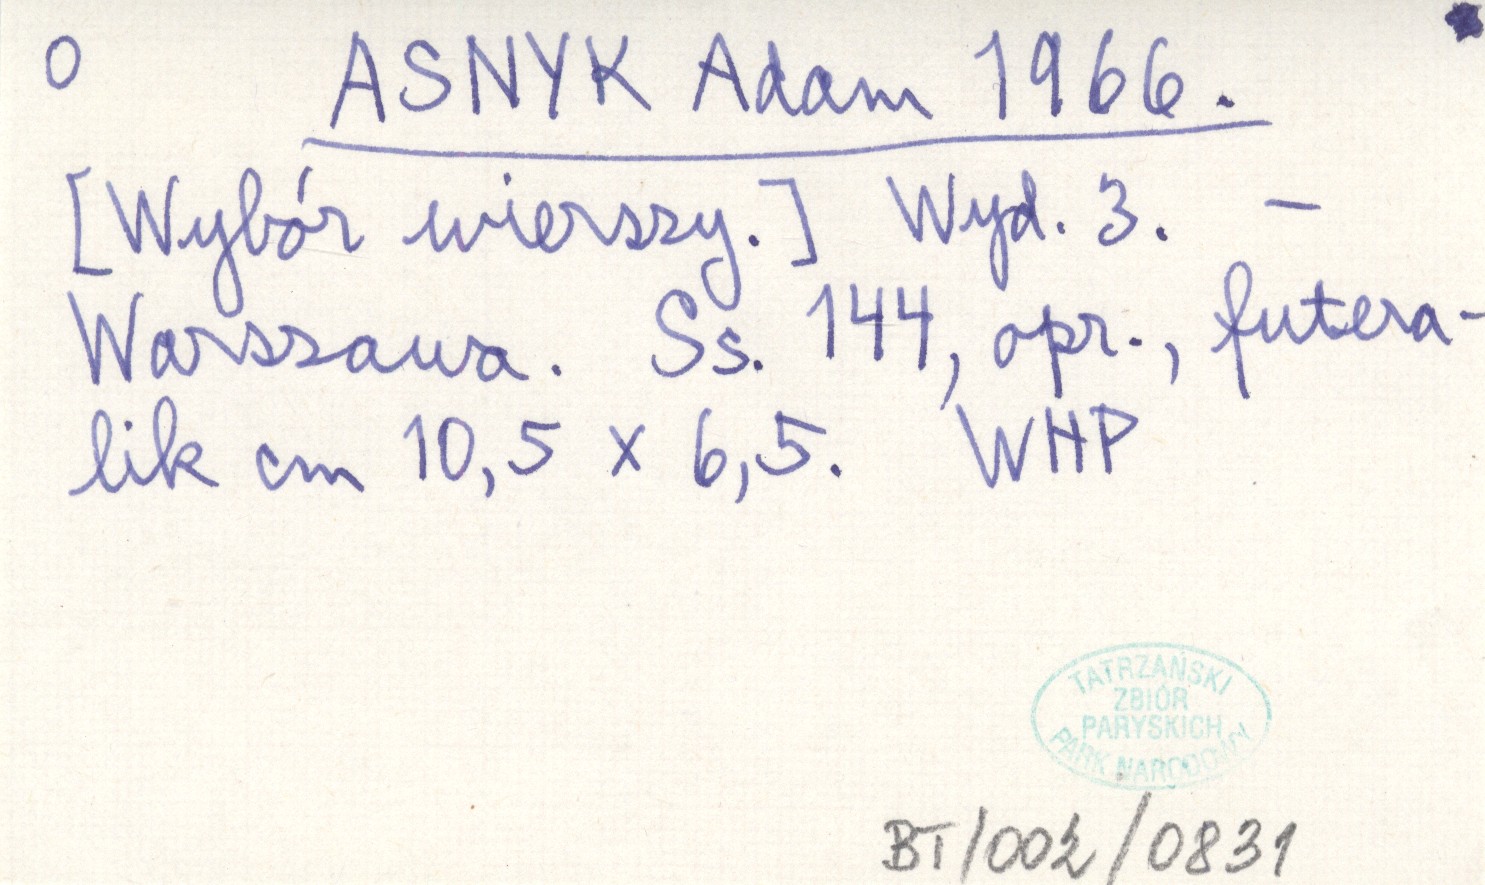 O ASNYK Adam 1966.
[Wybór wierszy.] Wyd. 3. –
Warszawa. Ss. 144, opr., futera-
lik cm 10,5 x 6,5. WHP
TATRZAŃSKI
ZBIÓR
PARYSKICH
PARK NARODOWY
BT/002/0831